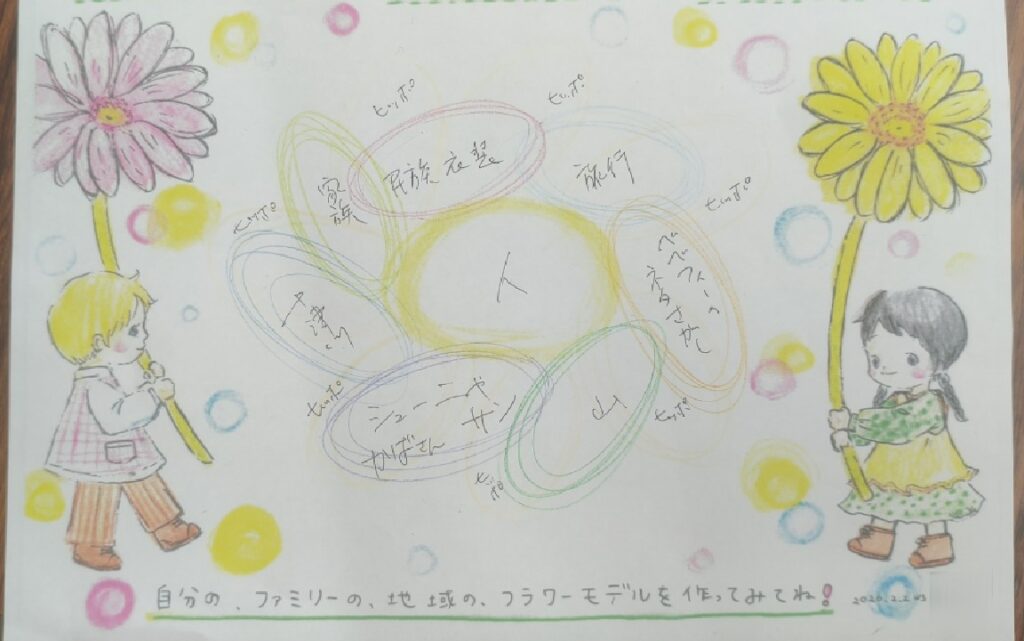 ヒッポ
ヒッポ
民族衣装
旅行
家族
ヒッポ
ヒッポ
人
ベベフィーの
ネタさがし
ヒッポ
シューニャ
サン
かばさん
山
ヒッポ
ヒッポ
自分の、ファミリーの、地域の、フラワーモデルを作ってみてね!